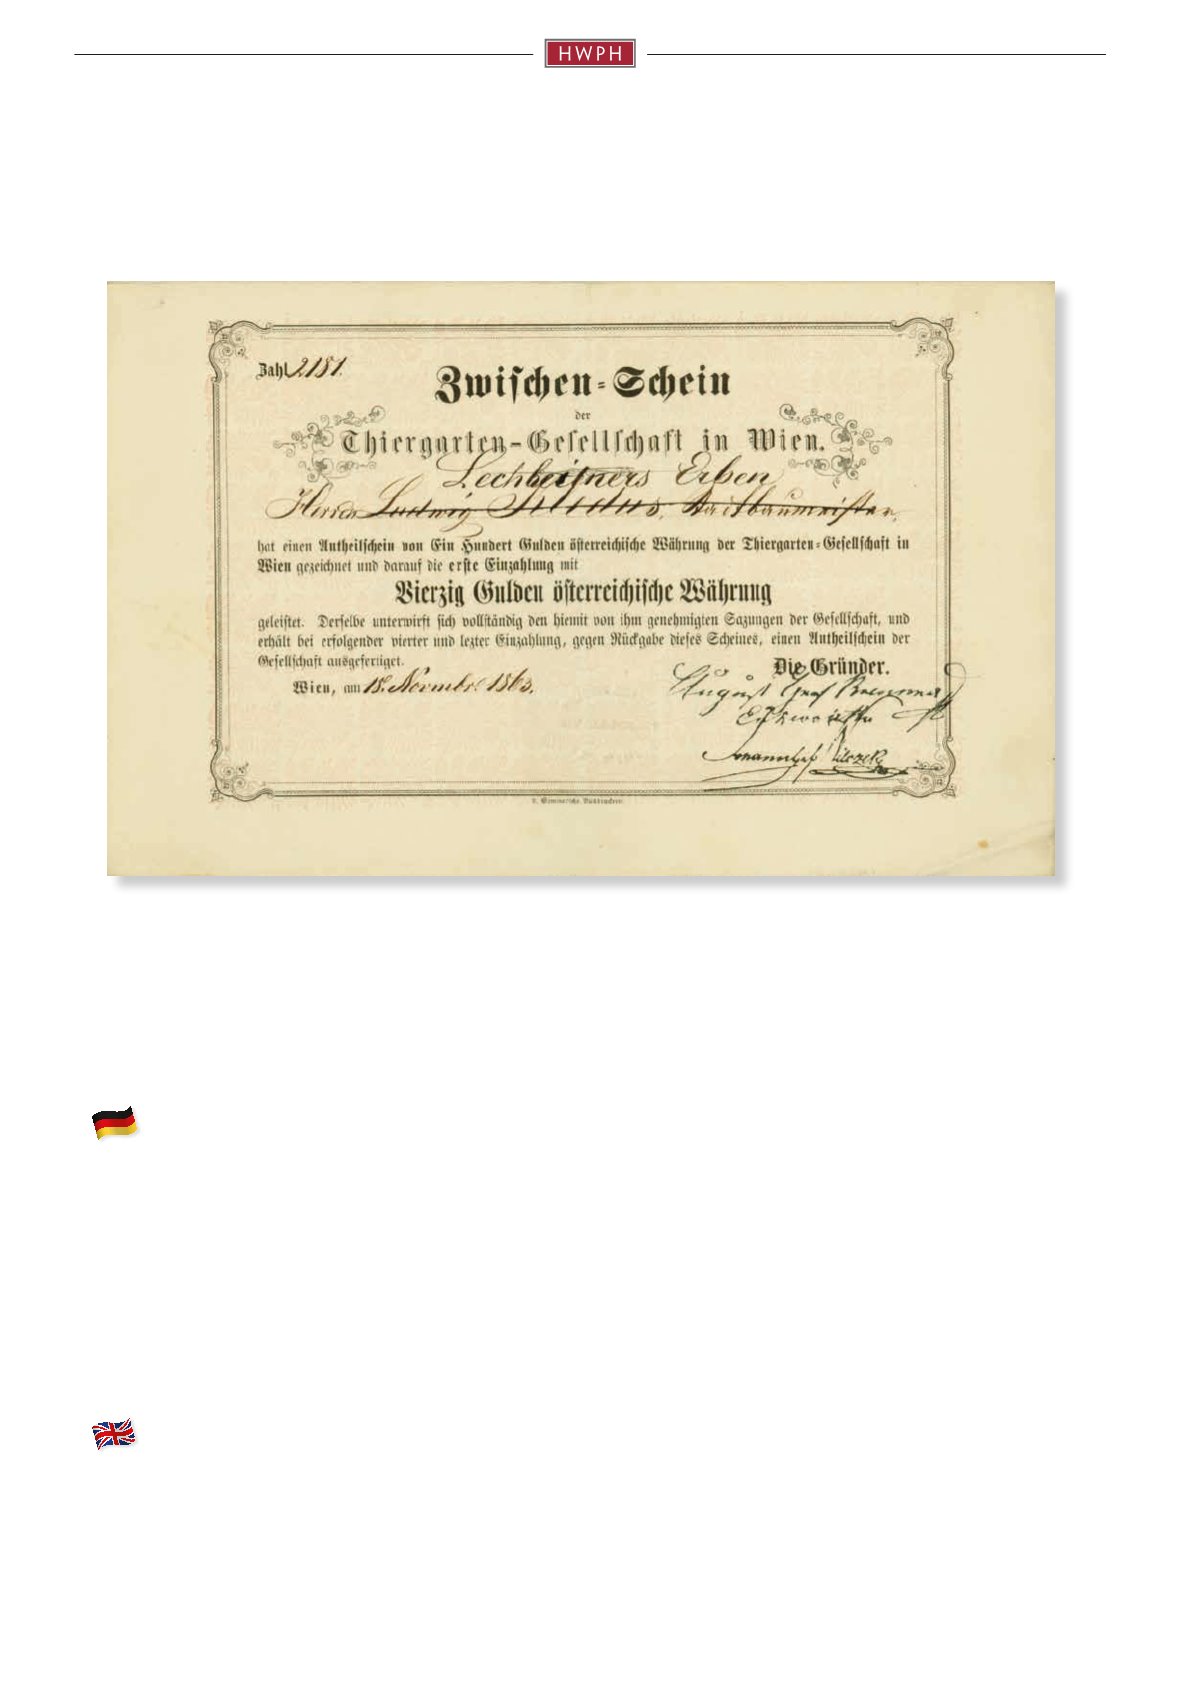 HWPH
Zahl 2181.
Zwischen-Schein
der
Thiergarten-Gesellschaft in Wien.
Lechleitners Erben
Herrn Ludwig Stadtbaumeister,
hat einen Antheilschein von Ein Hundert Gulden österreichische Währung der Thiergarten-Gesellschaft in
Wien gezeichnet und darauf die erste Einzahlung mit
Vierzig Gulden österreichische Währung
geleistet. Derselbe unterwirft sich vollständig den hiemit von ihm genehmigten Sazungen der Gesellschaft, und
erhält bei erfolgender vierter und lezter Einzahlung, gegen Rückgabe dieses Scheines, einen Antheilschein der
Gesellschaft ausgefertiget.
Die Gründer.
Wien, am 18. Novembre 1863.
August Graf Breunner